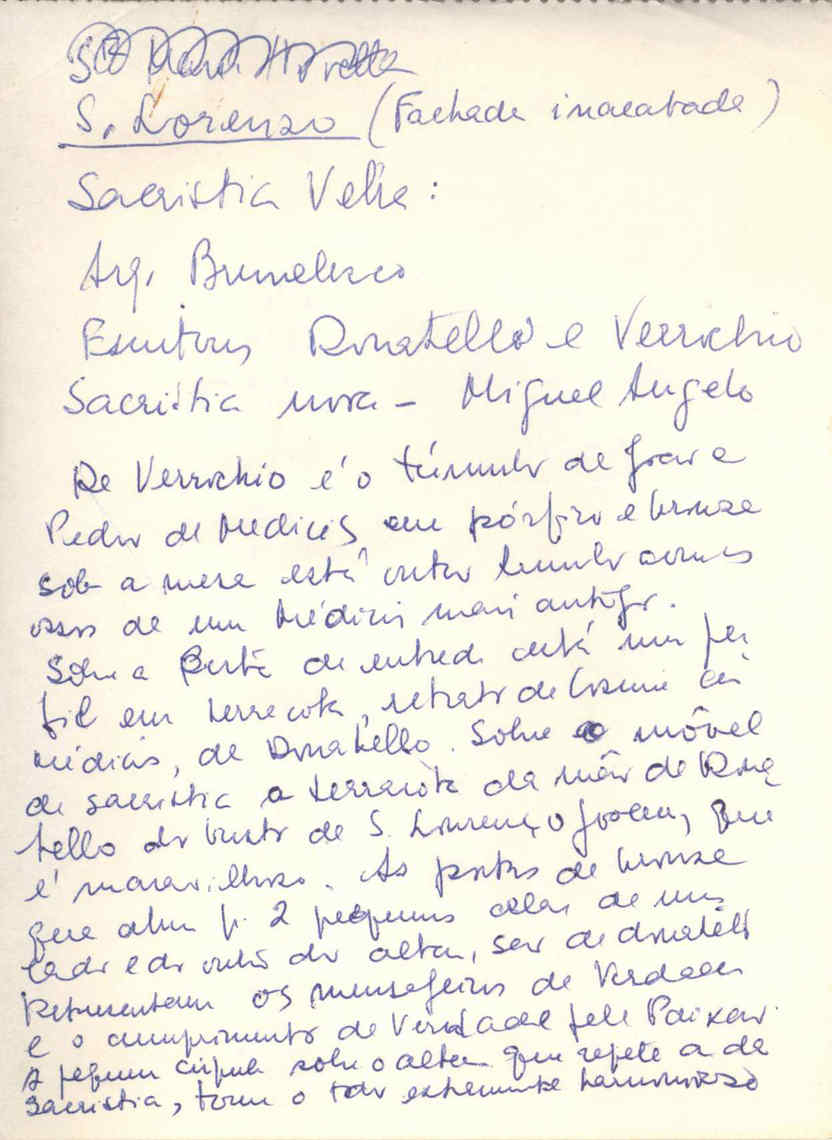 S. Lorenzo (Fachada inacabada)
Sacristia Velha:
Arq. Brunelesco
Escultores Donatello e Verrochio
Sacristia nova - Miguel Angelo
De Verrochio é o túmulo de Joao e
Pedro de Medicis em pórfiro e bronze
sob a mesa está outro tumulo com os
ossos de um Médicis mais antigo.
Sobre a Porta de entrada está um per
fil em terracota, retrato de Cosme de
Médicis, de Donatello. Sobre o móvel
de sacristia a terracota da mão de Dona
tello do busto de S. Lourenço Jovem, que
é maravilhoso. As portas de bronze
que abrem p. 2 pequenas celas de um
lado e do outro do altar, sao de donatello
Representam os mensageiros de Verdade
e o cumprimento de Verdade pela Paixao.
A pequena cúpula sobre o altar que repete a da
sacristia, torna o todo extremamente harmonioso